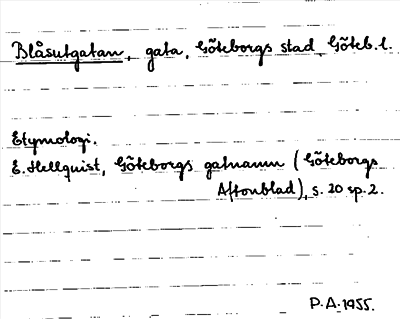 Blåsutgatan, gata, Göteborgs stad, Göteb. l.
Etymologi.
E. Hellquist, Göteborgs gatnamn (Göteborgs
Aftonblad), s. 20 sp. 2.
P. A. 1955.